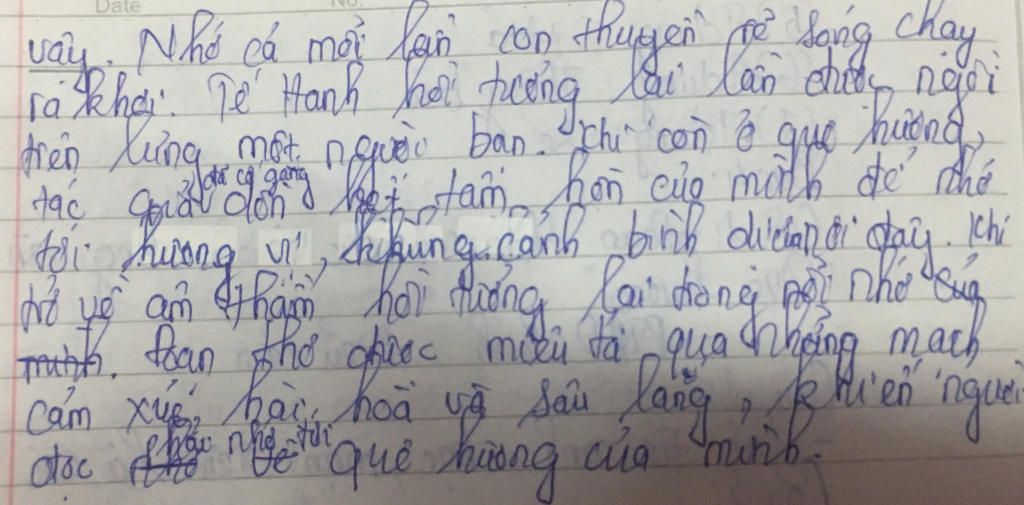 Date No.
vậy. Nhớ cả mỗi lần con thuyền rẽ sóng chạy
ra khơi. Tế Hanh hồi tưởng lại lần được ngồi
trên lưng một người bạn. Khi còn ở quê hương,
tác giả đã cố gắng dồn hết tâm hồn của mình để nhớ
tới hương vị, khung cảnh bình dị nơi đây. Khi
trở về âm thầm hồi tưởng lại trong nỗi nhớ của
mình. Đoạn thơ được miêu tả qua những mạch
cảm xúc hài hoà và sâu lắng, khiến người
đọc phải nhớ tới quê hương của mình.